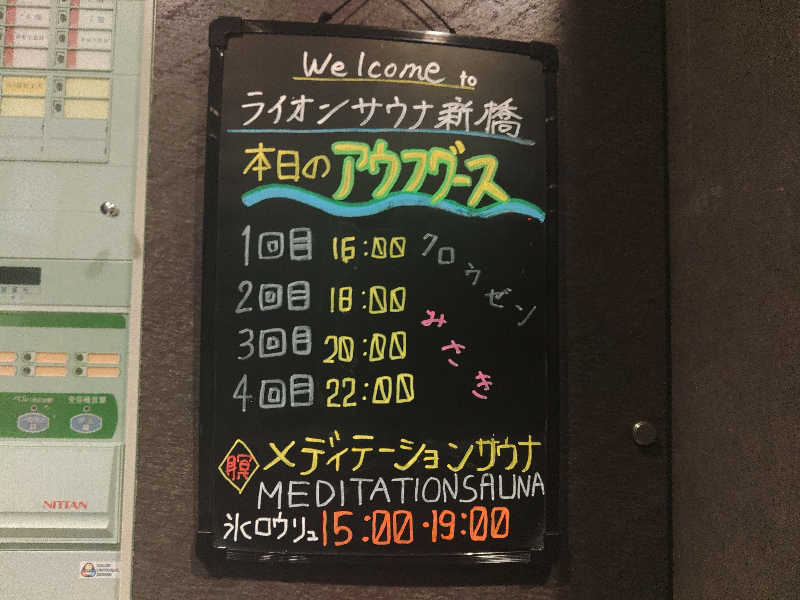 Welcome to
ライオンサウナ新橋
本日のアウフグース
1回目 16:00 クロウゼン
2回目 18:00
3回目 20:00 みさき
4回目 22:00
瞑 メディテーションサウナ
MEDITATIONSAUNA
氷ロウリュ 15:00・19:00
NITTAN